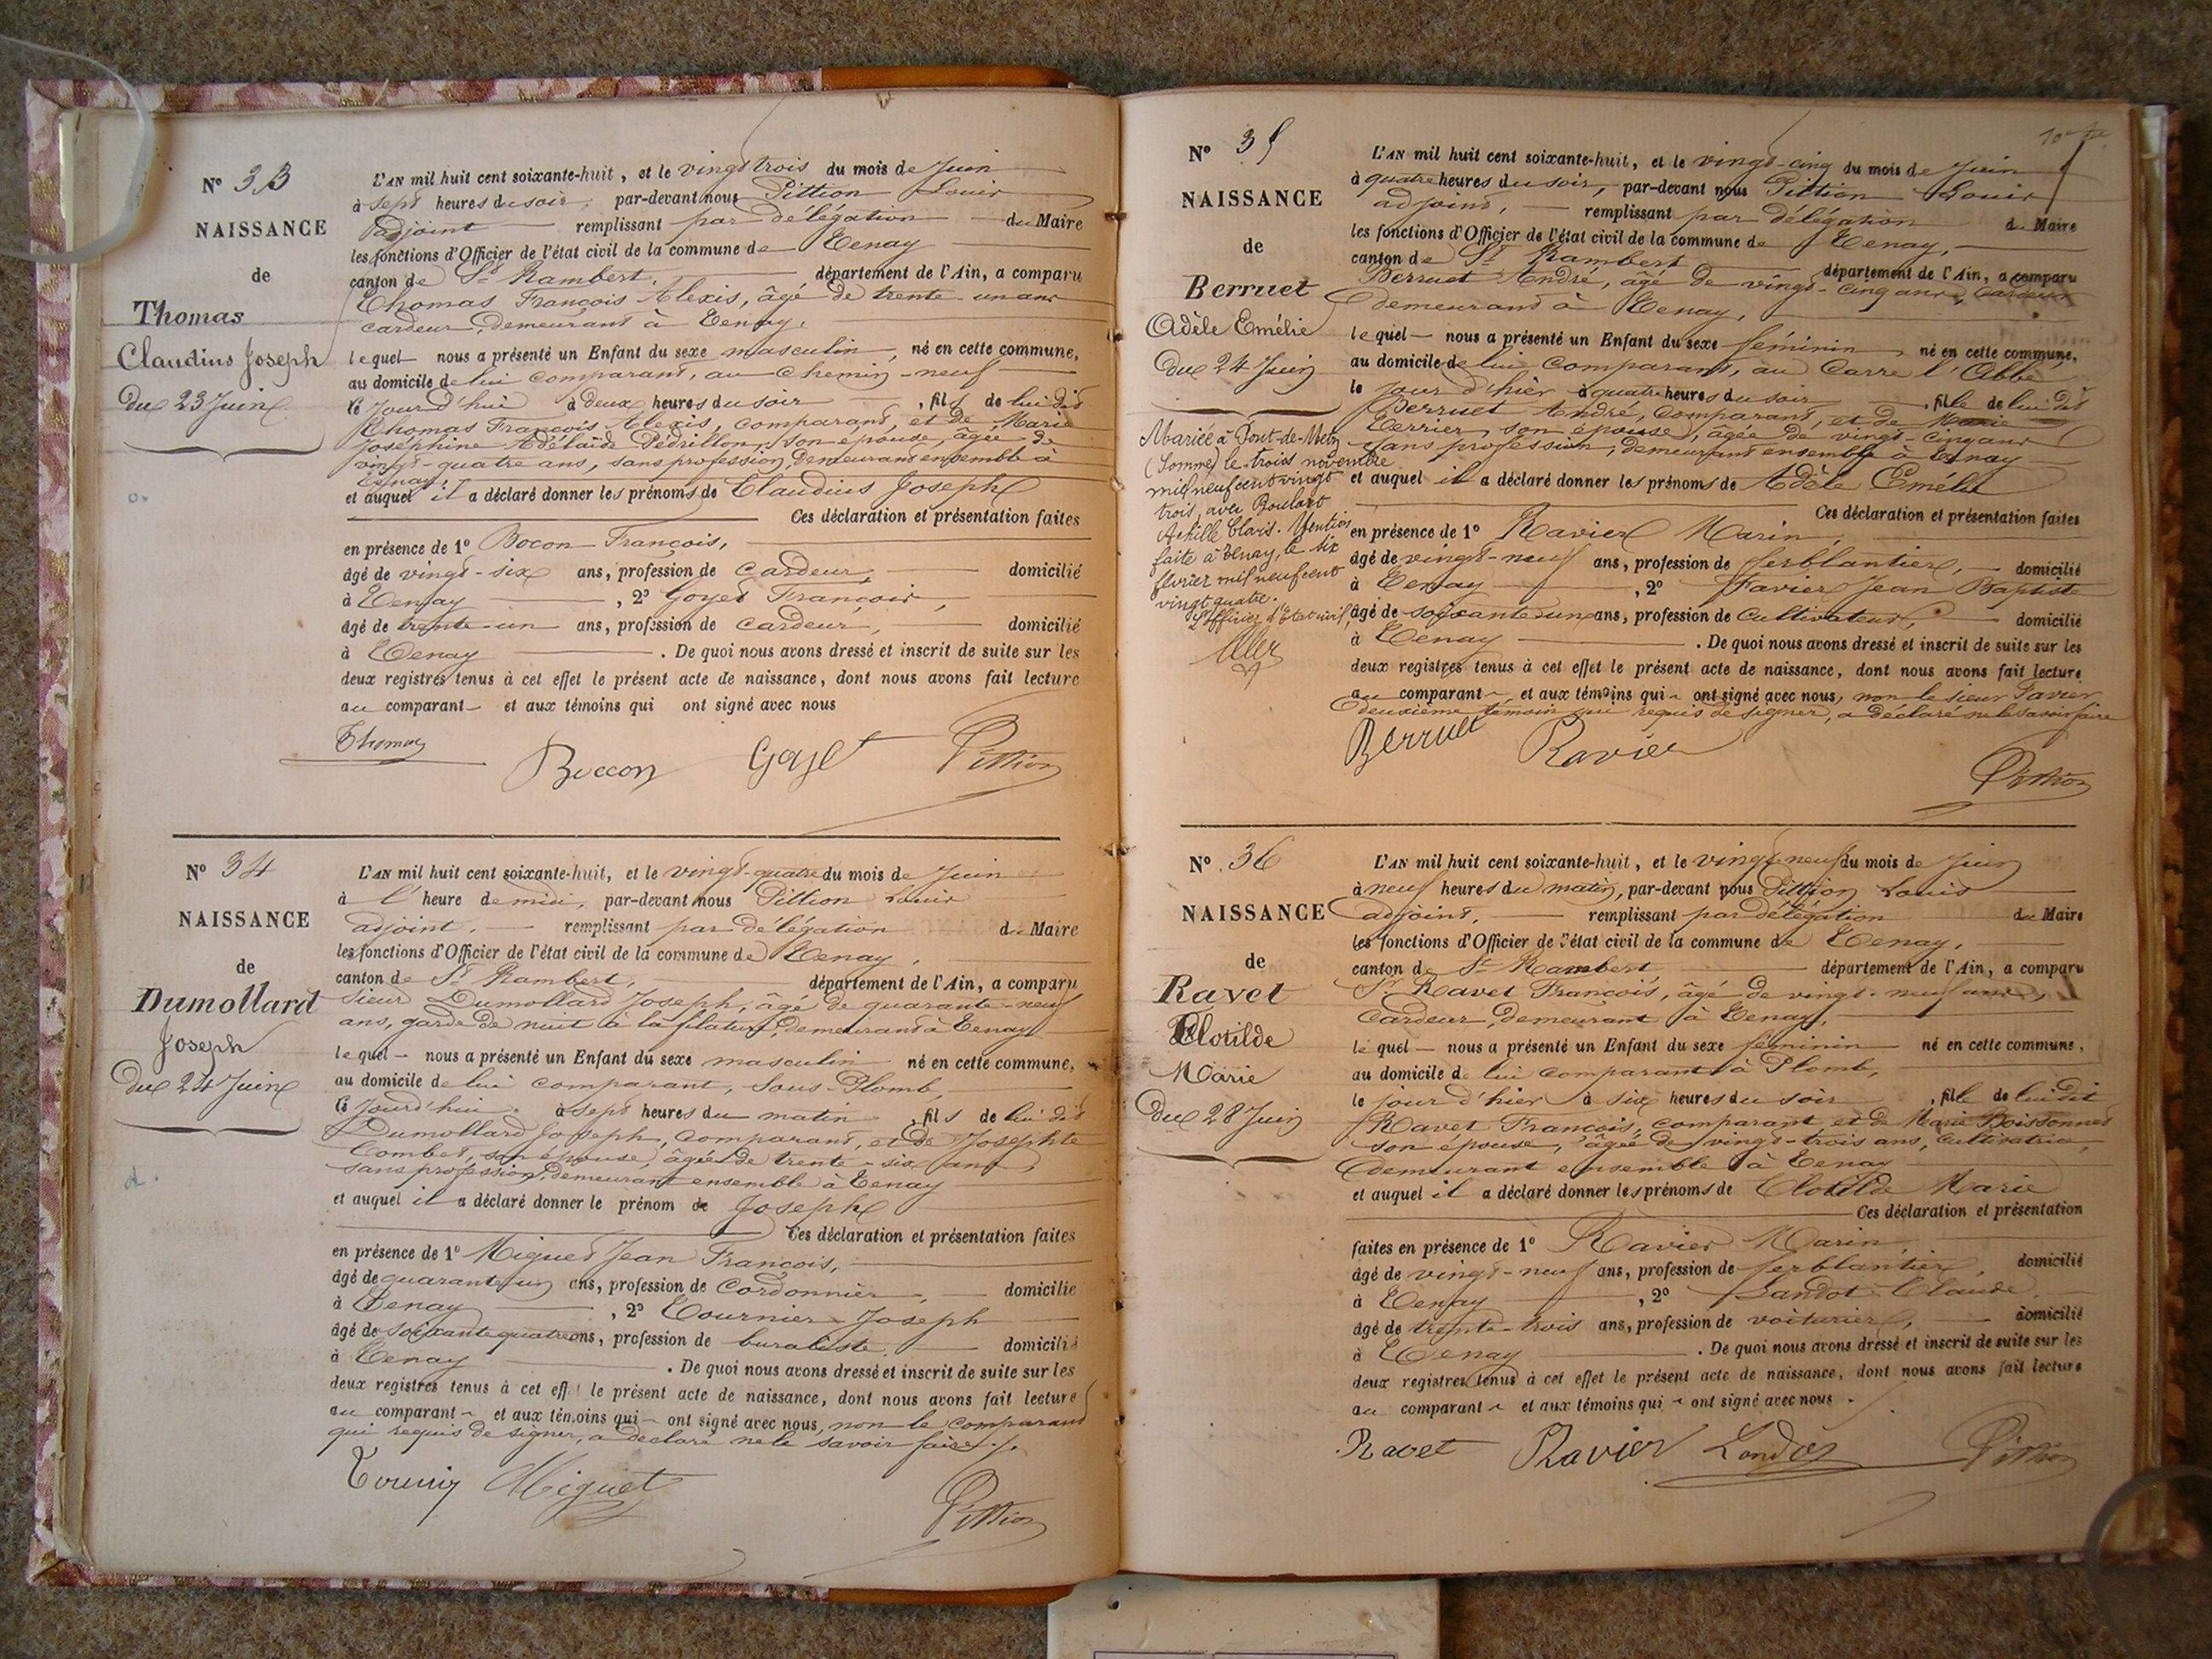 N° 33
NAISSANCE
de
Thomas
Claudius Joseph
Du 23 Juin
L'AN mil huit cent soixante-huit, et le vingt trois du mois de Juin
à sept heures du soir, par-devant nous Pittion Louis
adjoint remplissant par délégation du Maire
les fonctions d'Officier de l'état civil de la commune de Tenay
canton de St Rambert, département de l'Ain, a comparu
Thomas François Alexis, âgé de trente-un ans
cardeur, demeurant à Tenay,
lequel nous a présenté un Enfant du sexe masculin, né en cette commune,
au domicile de lui comparant, au Chemin-neuf
le jourd'hui à deux heures du soir, fils de lui dit
Thomas François Alexis, comparant, et de Marie
Joséphine Adélaïde Pédrillon, son épouse, âgée de
vingt-quatre ans, sans profession, demeurant ensemble à
Tenay,
et auquel il a déclaré donner les prénoms de Claudius Joseph
Ces déclaration et présentation faites
en présence de 1° Bocon François,
âgé de vingt-six ans, profession de cardeur, domicilié
à Tenay, 2° Goyet François,
âgé de trente-un ans, profession de cardeur, domicilié
à Tenay. De quoi nous avons dressé et inscrit de suite sur les
deux registres tenus à cet effet le présent acte de naissance, dont nous avons fait lecture
au comparant et aux témoins qui ont signé avec nous
Thomas Boccon Goyet Pittion
N° 34
NAISSANCE
de
Dumollard
Joseph
Du 24 Juin
d.
L'AN mil huit cent soixante-huit, et le vingt-quatre du mois de Juin
à l'heure de midi, par-devant nous Pittion Louis
adjoint, remplissant par délégation du Maire
les fonctions d'Officier de l'état civil de la commune de Tenay,
canton de St Rambert, département de l'Ain, a comparu
Sieur Dumollard Joseph, âgé de quarante-neuf
ans, garde de nuit à la filature, demeurant à Tenay
lequel nous a présenté un Enfant du sexe masculin né en cette commune,
au domicile de lui comparant, Sous-Plomb,
le jourd'hui à sept heures du matin, fils de lui dit
Dumollard Joseph, comparant, et de Josephte
Combet, son épouse, âgée de trente-six ans,
sans profession, demeurant ensemble à Tenay
et auquel il a déclaré donner le prénom de Joseph
Ces déclaration et présentation faites
en présence de 1° Miguet Jean François,
âgé de quarante un ans, profession de Cordonnier, domicilié
à Tenay, 2° Tournier Joseph
âgé de soixante quatre ans, profession de buraliste, domicilié
à Tenay. De quoi nous avons dressé et inscrit de suite sur les
deux registres tenus à cet eff le présent acte de naissance, dont nous avons fait lecture
au comparant et aux témoins qui ont signé avec nous, non le comparant
qui requis de signer, a déclaré ne le savoir faire./.
Miguet Pittion
N° 35
NAISSANCE
de
Berruet
Adèle Emélie
Du 24 Juin
Mariée à Pont-de-Metz
(Somme) le trois novembre
mil neuf cent vingt
trois, avec Boulart
Achille Clovis. Mention
faite à Tenay, le six
février mil neuf cent
vingt quatre.
L'officier d'Etat civil,
L'AN mil huit cent soixante-huit, et le vingt-cinq du mois de Juin
à quatre heures du soir, par-devant nous Pittion Louis
adjoint, remplissant par délégation du Maire
les fonctions d'Officier de l'état civil de la commune de Tenay,
canton de St Rambert département de l'Ain, a comparu
Berruet André, âgé de vingt-cinq ans, cardeur
demeurant à Tenay,
lequel nous a présenté un Enfant du sexe féminin, né en cette commune,
au domicile de lui comparant, au Carre l'Abbé
le jour d'hier à quatre heures du soir, fille de lui dit
Berruet André, comparant, et de Marie
Terrier, son épouse, âgée de vingt-cinq ans
sans profession, demeurant ensemble à Tenay
et auquel il a déclaré donner les prénoms de Adèle Emélie
Ces déclaration et présentation faites
en présence de 1° Ravier Marin,
âgé de vingt-neuf ans, profession de ferblantier, domicilié
à Tenay, 2° Favier Jean Baptiste
âgé de soixante un ans, profession de cultivateur, domicilié
à Tenay. De quoi nous avons dressé et inscrit de suite sur les
deux registres tenus à cet effet le présent acte de naissance, dont nous avons fait lecture
au comparant et aux témoins qui ont signé avec nous, non le sieur Favier
deuxième témoin qui requis de signer, a déclaré ne le savoir faire
Berruet Ravier
Pittion
N° 36
NAISSANCE
de
Ravet
Clotilde
Marie
Du 28 Juin
L'AN mil huit cent soixante-huit, et le vingt-neuf du mois de Juin
à neuf heures du matin, par-devant nous Pittion Louis
adjoint, remplissant par délégation du Maire
les fonctions d'Officier de l'état civil de la commune de Tenay,
canton de St Rambert département de l'Ain, a comparu
Sr Ravet François, âgé de vingt-neuf ans,
cardeur, demeurant à Tenay,
lequel nous a présenté un Enfant du sexe féminin né en cette commune,
au domicile de lui comparant à Plomb,
le jour d'hier à six heures du soir, fille de lui dit
Ravet François, comparant et de Marie Boissonnet
son épouse, âgée de vingt-trois ans, cultivatrice,
demeurant ensemble à Tenay
et auquel il a déclaré donner les prénoms de Clotilde Marie
Ces déclaration et présentation
faites en présence de 1° Ravier Marin,
âgé de vingt-neuf ans, profession de ferblantier, domicilié
à Tenay, 2° Landot Claude,
âgé de trente-trois ans, profession de voiturier, domicilié
à Tenay. De quoi nous avons dressé et inscrit de suite sur les
deux registres tenus à cet effet le présent acte de naissance, dont nous avons fait lecture
au comparant et aux témoins qui ont signé avec nous.
Ravet Ravier Landot Pittion